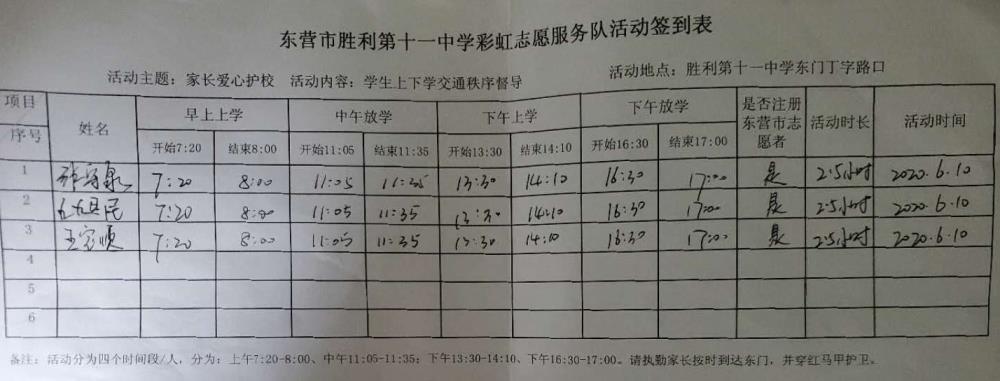 东营市胜利第十一中学彩虹志愿服务队活动签到表
活动主题：家长爱心护校 活动内容：学生上下学交通秩序督导 活动地点：胜利第十一中学东门丁字路口
项目 序号 姓名 早上上学 中午放学 下午上学 下午放学 是否注册东营市志愿者 活动时长 活动时间
开始7:20 结束8:00 开始11:05 结束11:35 开始13:30 结束14:10 开始16:30 结束17:00
1 7:20 8:00 11:05 11:35 13:30 14:10 16:30 17:00 是 2.5小时 2020.6.10
2 7:20 8:00 11:05 11:35 13:30 14:10 16:30 17:00 是 2.5小时 2020.6.10
3 7:20 8:00 11:05 11:35 13:30 14:10 16:30 17:00 是 2.5小时 2020.6.10
4
5
6
备注：活动分为四个时间段/人，分为：上午7:20-8:00、中午11:05-11:35；下午13:30-14:10、下午16:30-17:00。请执勤家长按时到达东门，并穿红马甲护卫。